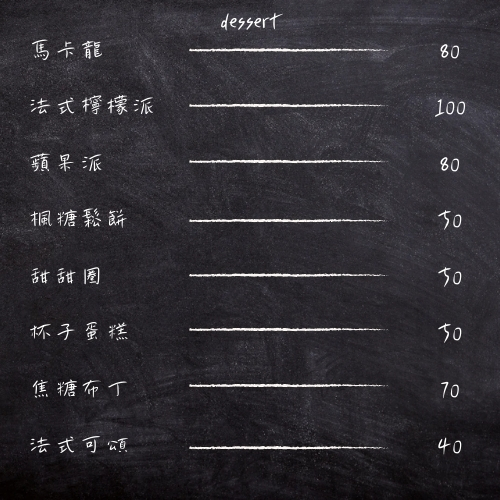 dessert
馬卡龍 80
法式檸檬派 100
蘋果派 80
楓糖鬆餅 50
甜甜圈 50
杯子蛋糕 50
焦糖布丁 70
法式可頌 40